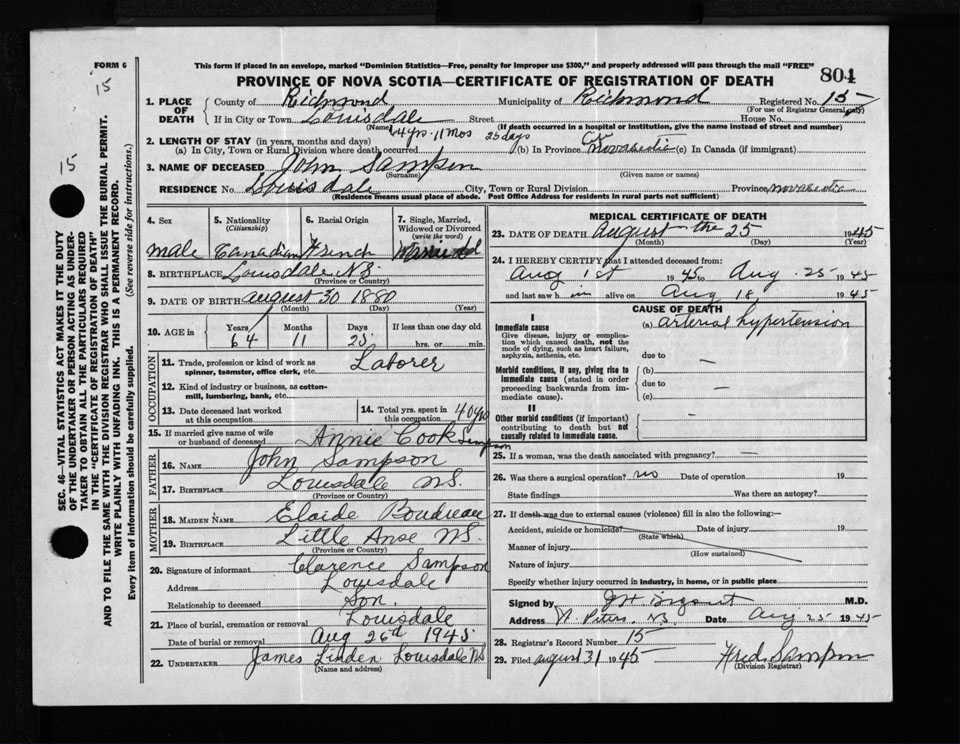 FORM 6
This form if placed in an envelope, marked "Dominion Statistics—Free, penalty for improper use $300," and properly addressed will pass through the mail "FREE"
15
PROVINCE OF NOVA SCOTIA—CERTIFICATE OF REGISTRATION OF DEATH
804
1. PLACE OF DEATH
County of Richmond Municipality of Richmond Registered No. 15
(For use of Registrar General only)
If in City or Town Louisdale Street House No.
(Name) (If death occurred in a hospital or institution, give the name instead of street and number)
64 yrs. 11 Mos 25 days
2. LENGTH OF STAY (in years, months and days)
(a) In City, Town or Rural Division where death occurred (b) In Province Novascotia (c) In Canada (if immigrant)
3. NAME OF DECEASED John Sampson
(Surname) (Given name or names)
RESIDENCE No. Louisdale City, Town or Rural Division Province Novascotia
(Residence means usual place of abode. Post Office Address for residents in rural parts not sufficient)
15
SEC. 46—VITAL STATISTICS ACT MAKES IT THE DUTY
OF THE UNDERTAKER OR PERSON ACTING AS UNDER-
TAKER TO OBTAIN ALL THE PARTICULARS REQUIRED
IN THE "CERTIFICATE OF REGISTRATION OF DEATH"
AND TO FILE THE SAME WITH THE DIVISION REGISTRAR WHO SHALL ISSUE THE BURIAL PERMIT.
WRITE PLAINLY WITH UNFADING INK. THIS IS A PERMANENT RECORD.
Every item of information should be carefully supplied. (See reverse side for instructions.)
4. Sex
male
5. Nationality
(Citizenship)
Canadian
6. Racial Origin
French
7. Single, Married,
Widowed or Divorced
(write the word)
Married
8. BIRTHPLACE Louisdale N.S.
(Province or Country)
9. DATE OF BIRTH august 30 1880
(Month) (Day) (Year)
10. AGE in Years Months Days If less than one day old
64 11 25 hrs. or min.
OCCUPATION
11. Trade, profession or kind of work as
spinner, teamster, office clerk, etc. Laborer
12. Kind of industry or business, as cotton-
mill, lumbering, bank, etc.
13. Date deceased last worked
at this occupation
14. Total yrs. spent in
this occupation 40 yrs
15. If married give name of wife
or husband of deceased Annie Cook Sampson
FATHER
16. NAME John Sampson
17. BIRTHPLACE Louisdale N.S.
(Province or Country)
MOTHER
18. MAIDEN NAME Elaide Boudreau
19. BIRTHPLACE Little Anse N.S.
(Province or Country)
20. Signature of informant Clarence Sampson
Address Louisdale
Relationship to deceased Son.
21. Place of burial, cremation or removal Louisdale
Date of burial or removal Aug 26th 1945
22. UNDERTAKER James Linden Louisdale N.S
(Name and address)
MEDICAL CERTIFICATE OF DEATH
23. DATE OF DEATH August the 25 1945
(Month) (Day) (Year)
24. I HEREBY CERTIFY that I attended deceased from:
Aug 1st 1945 to Aug. 25 1945
and last saw him alive on Aug 18, 1945
CAUSE OF DEATH
I
Immediate cause
Give disease, injury or complica-
tion which caused death, not the
mode of dying, such as heart failure,
asphyxia, asthenia, etc.
(a) arterial hypertension
due to —
Morbid conditions, if any, giving rise to
immediate cause (stated in order
proceeding backwards from im-
mediate cause).
(b)
due to —
(c)
II
Other morbid conditions (if important)
contributing to death but not
causally related to immediate cause.
25. If a woman, was the death associated with pregnancy? —
26. Was there a surgical operation? no Date of operation 19
State findings Was there an autopsy?
27. If death was due to external causes (violence) fill in also the following:—
Accident, suicide or homicide? Date of injury 19
(State which)
Manner of injury
(How sustained)
Nature of injury
Specify whether injury occurred in industry, in home, or in public place
Signed by M.D.
Address St. Peters, N.S. Date Aug 25 1945
28. Registrar's Record Number 15
29. Filed august 31 1945 Fred Sampson
(Division Registrar)